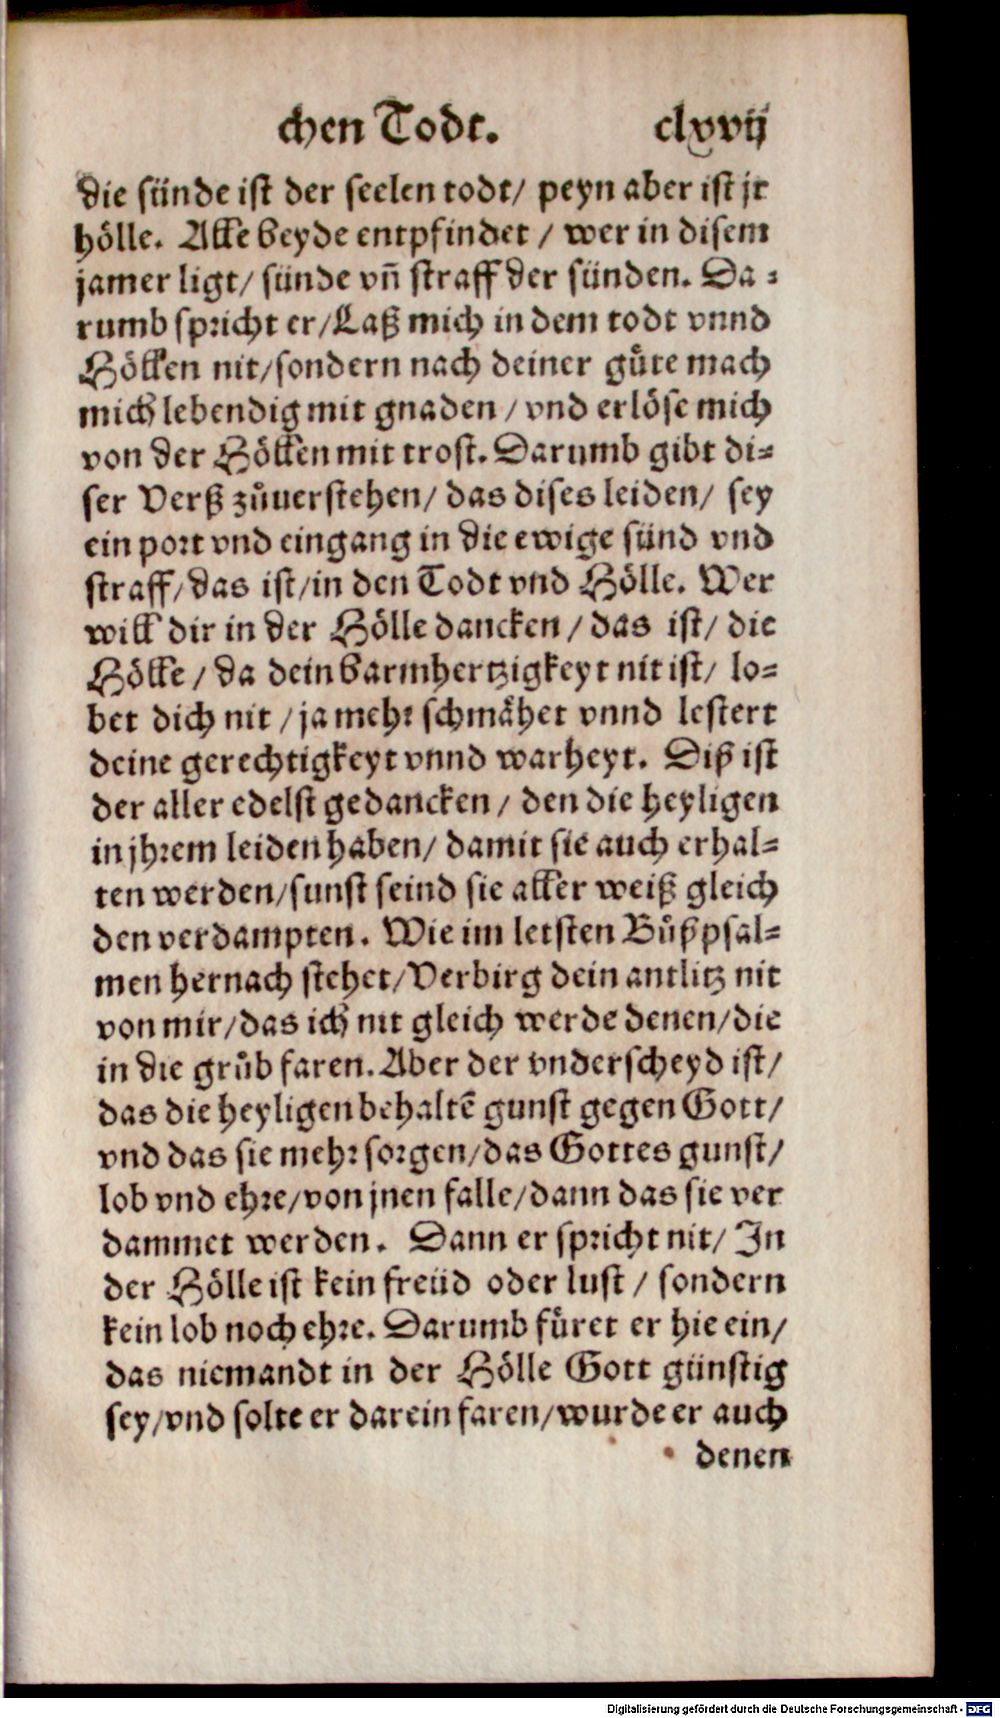 chen Todt. clxvij
die sünde ist der seelen todt/ peyn aber ist jr
hölle. Alle beyde entpfindet / wer in disem
jamer ligt/ sünde vñ straff der sünden. Da-
rumb spricht er/Laß mich in dem todt vnnd
Höllen nit/sondern nach deiner guͤte mach
mich lebendig mit gnaden / vnd erlöse mich
von der Höllen mit trost. Darumb gibt di-
ser Verß zuͦuerstehen/ das dises leiden/ sey
ein port vnd eingang in die ewige sünd vnd
straff/das ist/in den Todt vnd Hölle. Wer
will dir in der Hölle dancken / das ist/ die
Hölle / da dein barmhertzigkeyt nit ist/ lo-
bet dich nit / ja mehr schmaͤhet vnnd lestert
deine gerechtigkeyt vnnd warheyt. Diß ist
der aller edelst gedancken / den die heyligen
in jhrem leiden haben/ damit sie auch erhal-
ten werden/sunst seind sie aller weiß gleich
den verdampten. Wie im letsten Buͦßpsal-
men hernach stehet/Verbirg dein antlitz nit
von mir/das ich nit gleich werde denen/die
in die gruͦb faren. Aber der vnderscheyd ist/
das die heyligen behaltē gunst gegen Gott/
vnd das sie mehr sorgen/das Gottes gunst/
lob vnd ehre/von jnen falle/dann das sie ver
dammet werden. Dann er spricht nit/ In
der Hölle ist kein freüd oder lust / sondern
kein lob noch ehre. Darumb fuͤret er hie ein/
das niemandt in der Hölle Gott günstig
sey/vnd solte er darein faren/wurde er auch
denen
Digitalisierung gefördert durch die Deutsche Forschungsgemeinschaft - DFG